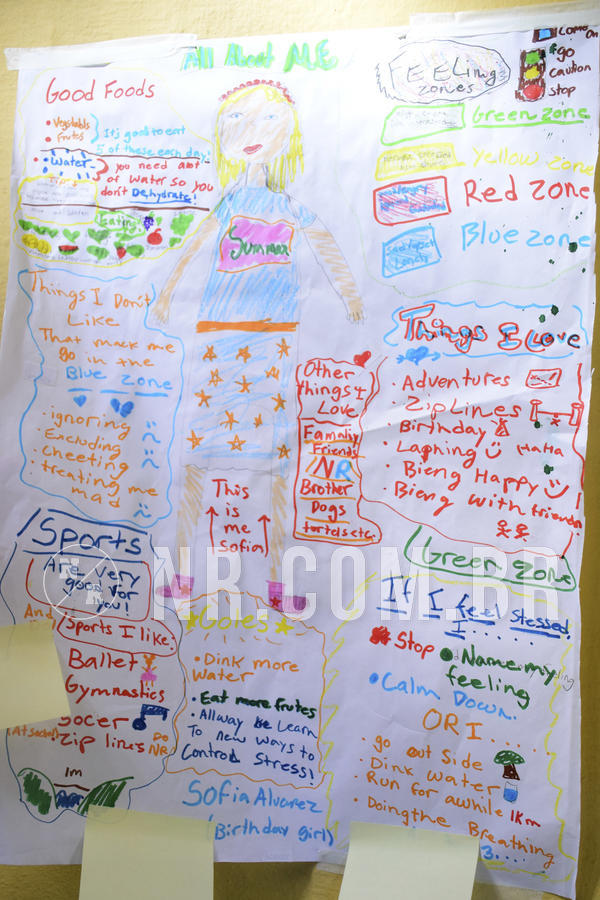 All About ME
Good Foods
• Vegetables
• Frutes
It's good to eat
5 of these each day.
• Water
you need alot
of water so you
don't Dehydrate!
Eating
FEELing
zones
come on
go
caution
stop
Green zone
Yellow zone
Red zone
Blue zone
Summer
Things I Don't
Like
That mack me
go in the
Blue Zone
• ignoring
• Excluding
• cheeting
• treating me
mad
Other
things I
Love
Famaliy
Friends
NR
Brother
Dogs
tortels etc.
Things I Love
• Adventures
• ZipLines
• Birthday
• Laphing HaHa
• Bieng Happy
• Bieng with friends
Green zone
This
is
me
Sofia
Sports
Are very
good vor
you!
And
Sports I like:
Ballet
Gymnastics
Socer
Zip lines
Do
NR
1m
Gores
• Dink more
water
• Eat more frutes
• Allway be Learn
To new ways to
Control Stress!
Sofia Alvarez
(Birthday girl)
If I feel stressed
I.....
Stop
• Name my
feeling
• Calm Down.
OR I.....
• go out Side
• Dink water
• Run for awhile 1Km
• Doing the Breathing
3....
NR.COM.BR